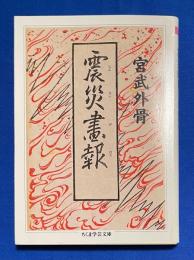 宮武外骨
震災畫報
ちくま学芸文庫